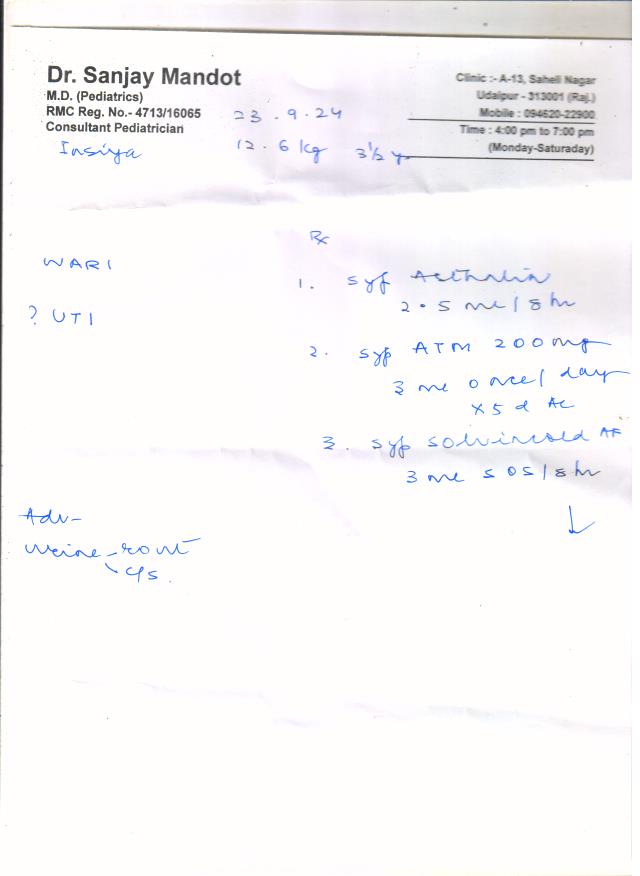 Dr. Sanjay Mandot
M.D. (Pediatrics)
RMC Reg. No.- 4713/16065
Consultant Pediatrician
Clinic :- A-13, Saheli Nagar
Udaipur - 313001 (Raj.)
Mobile : 094620-22900
Time : 4:00 pm to 7:00 pm
(Monday-Saturaday)
23.9.24
Insiya 12.6 kg 3½ y
Rx
WARI
? UTI
1. syp
2.5 ml / 8 hr
2. syp ATM 200 mg
3 ml once / day
x 5 d AC
3. syp Solvincold AF
3 ml SOS / 8 hr
Adv-
Urine - rout
c/s.